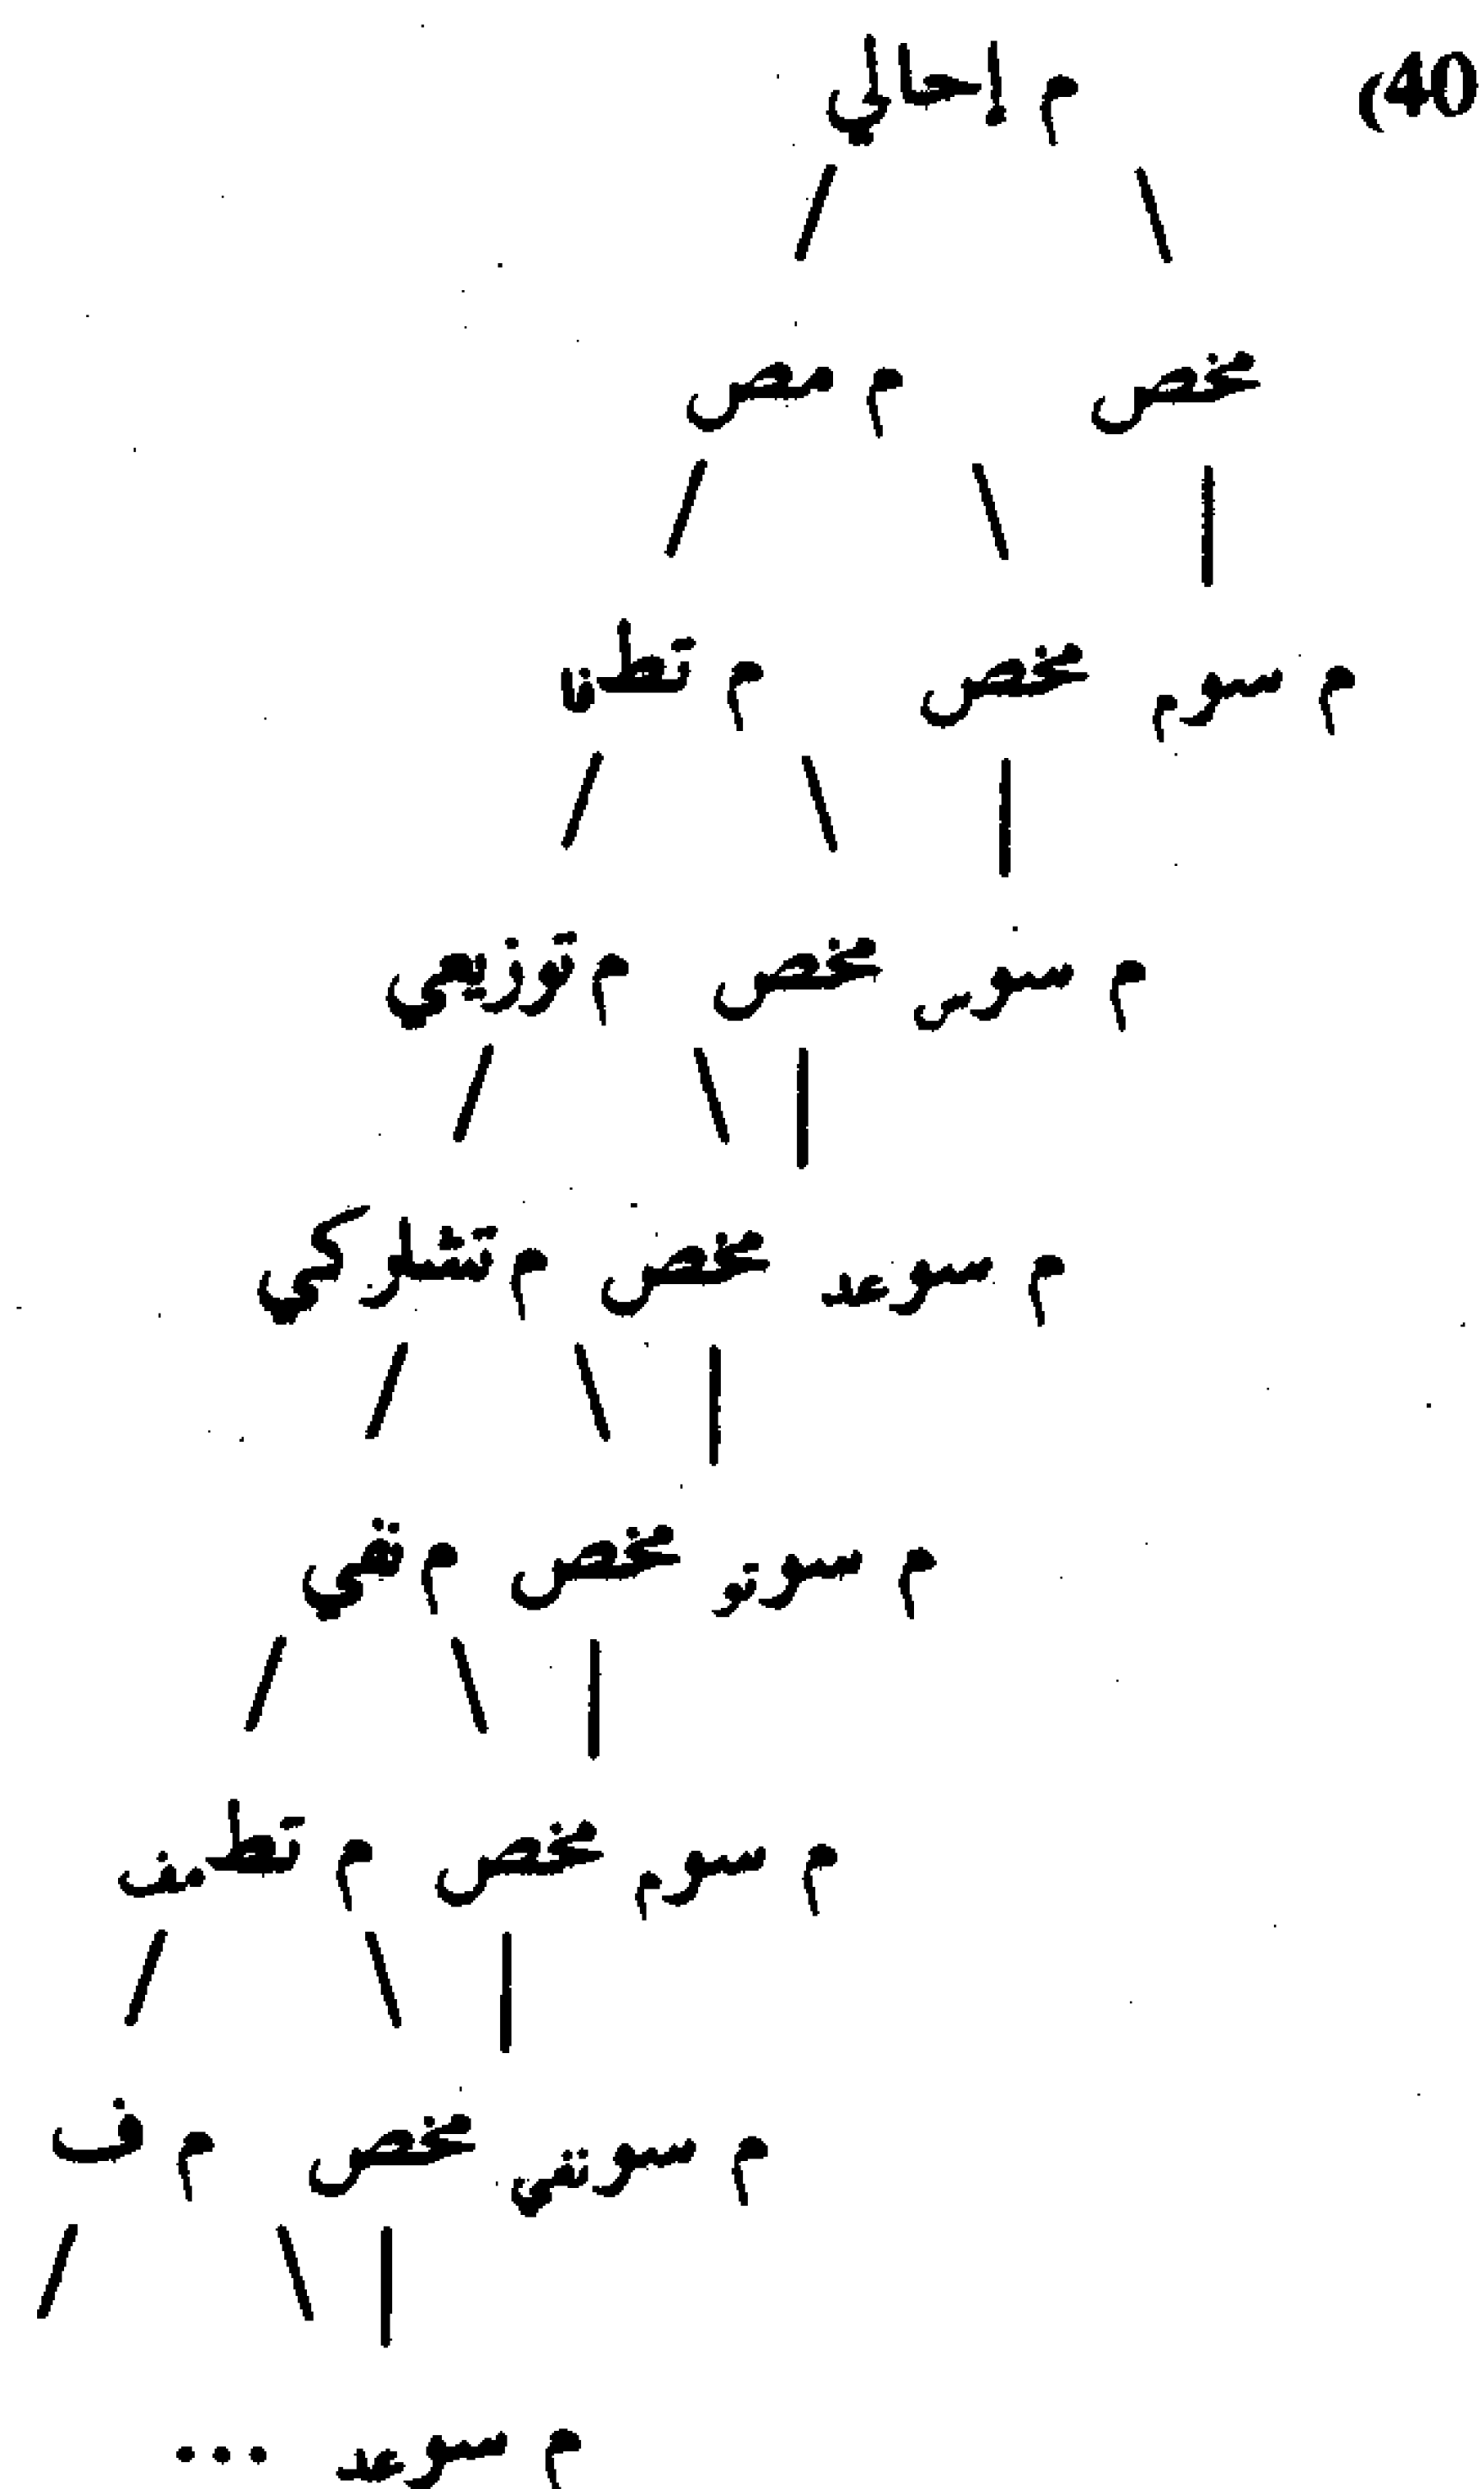 (40 م إحالي
مخص م مص
م سوم مخص م تطفا
م سوس مخص م توزيعي
م سوعد مخص م تشاركي
م سوتو مخص م نفي
م سوم مخص م تطمف
م سونفي مخص م ف
م سوعد ...